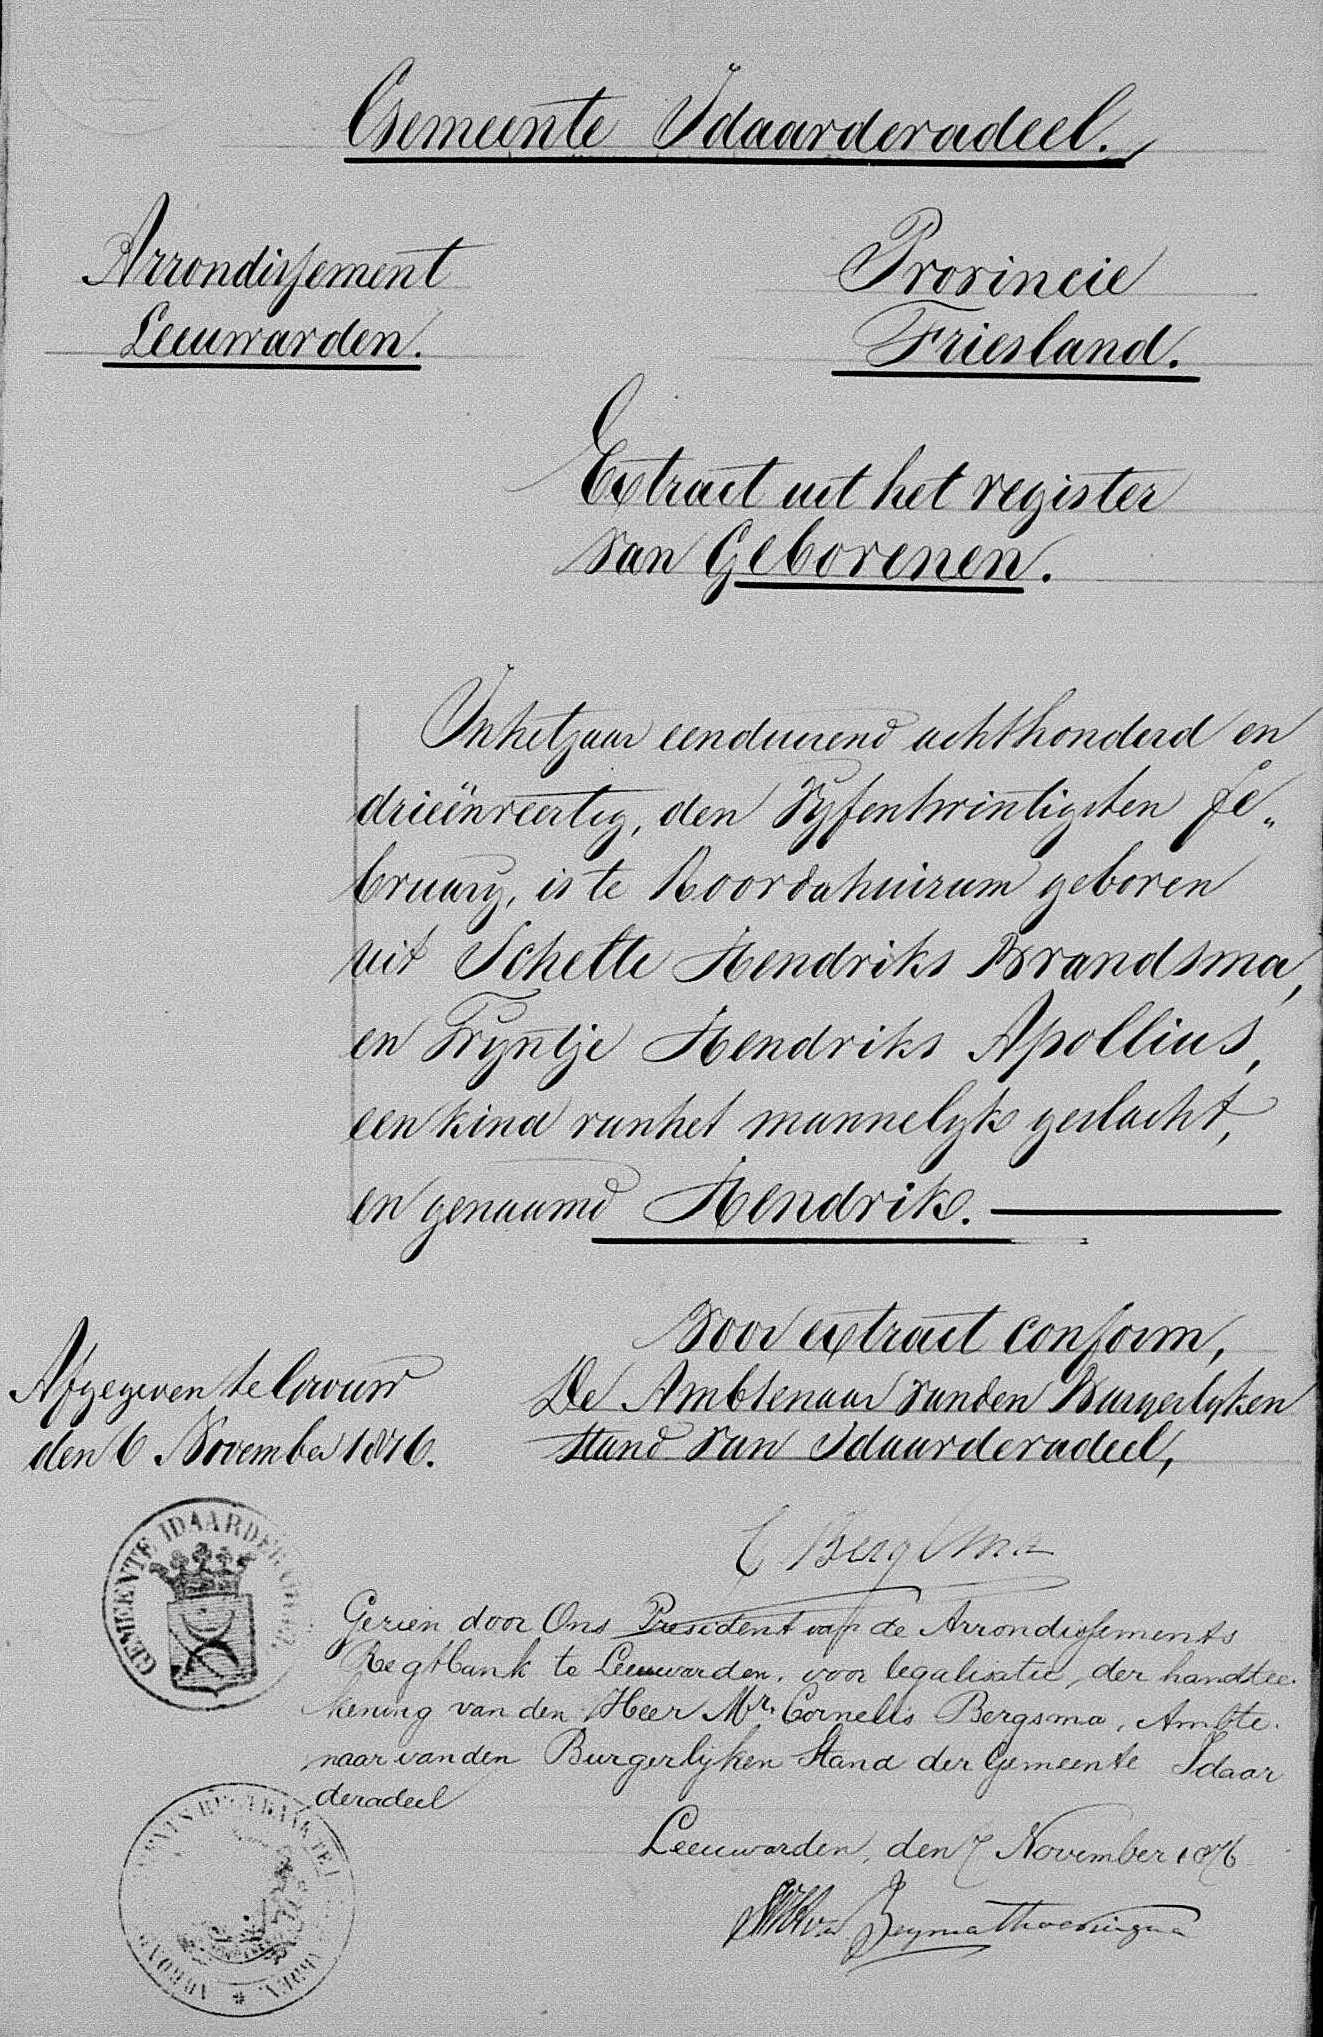 Gemeente Idaarderadeel.
Arrondissement
Leeuwarden.
Provincie
Friesland.
Extract uit het register
van Geborenen.
In het jaar eenduizend achthonderd en
drieënveertig, den Vyfentwintigsten Fe„
bruary, is te Roordahuizum geboren
uit Schelte Hendriks Brandsma,
en Tryntje Hendriks Apollius,
een kind van het mannelyk geslacht,
en genaamd Hendrik.
Voor extract conform,
De Ambtenaar van den Burgerlyken
stand van Idaarderadeel,
Afgegeven te Grouw
den 6 November 1876.
C Bergsma
GEMEENTE IDAARDERADEEL
Gezien door Ons President van de Arrondissements
Regtbank te Leeuwarden, voor legalisatie, der handtee-
kening van den Heer Mr. Cornelis Bergsma, Ambte-
naar van den Burgerlijken Stand der Gemeente Idaar
deradeel
Leeuwarden, den 7 November 1876